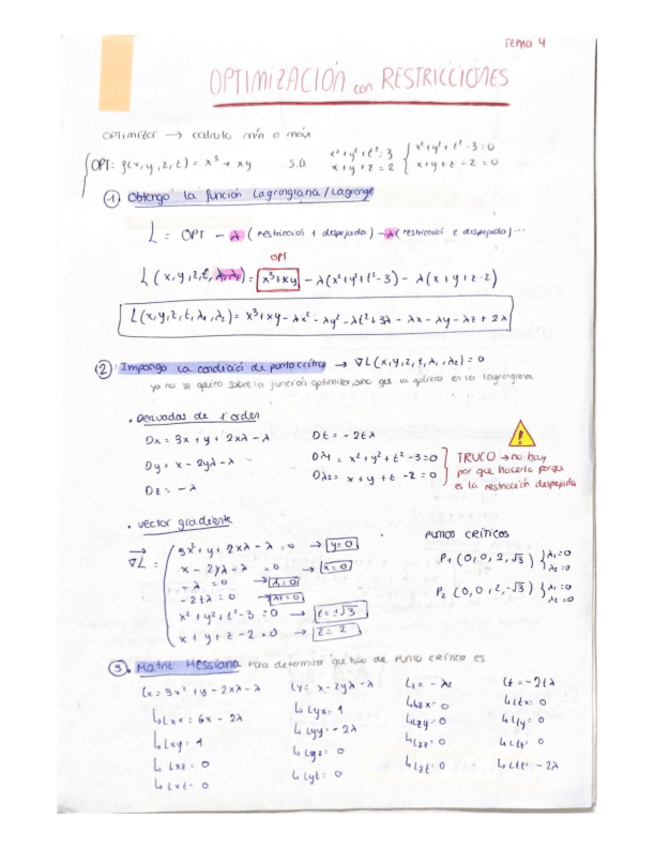 Tema 4
OPTIMIZACIÓN con RESTRICCIONES
OPTIMIZAR → calcula mín o máx
OPT: f(x,y,z,t) = x³ + xy s.a. x²+y²+t²=3 x²+y²+t²-3=0
x+y+z=2 x+y+z-2=0
① Obtengo la función Lagrangiana/Lagrange
L = OPT - λ (restricción 1 despejada) - λ (restricción 2 despejada)...
OPT
L(x,y,z,t,λ₁,λ₂) = x³+xy - λ(x²+y²+t²-3) - λ(x+y+z-2)
L(x,y,z,t,λ₁,λ₂) = x³+xy-λx²-λy²-λt²+3λ-λx-λy-λz+2λ
② Impongo la condición de punto crítico → ∇L(x,y,z,t,λ₁,λ₂) = 0
ya no se aplica sobre la función optimizar, sino que la aplico en la lagrangiana
. Derivadas de 1º orden
Dx = 3x + y + 2xλ - λ Dt = -2tλ
Dy = x - 2yλ - λ Dλ1 = x²+y²+t²-3=0
Dz = -λ Dλ2 = x+y+t-2=0
TRUCO → no hay
por que hacerlo porque
es la restricción despejada
. vector gradiente
PUNTOS CRÍTICOS
∇L =
3x²+y+2xλ-λ=0 → y=0
x-2yλ-λ=0 → x=0
-λ=0 → λ=0
-2tλ=0 → λ=0
x²+y²+t²-3=0 → t=±√3
x+y+z-2=0 → z=2
P₁ (0,0,2,√3) λ₁=0 λ₂=0
P₂ (0,0,2,-√3) λ₁=0 λ₂=0
③. Matriz Hessiana para determinar que tipo de punto crítico es
Lx = 3x²+y-2xλ-λ Ly = x-2yλ-λ Lz = -λ₂ Lt = -2tλ
↳ Lxx = 6x-2λ ↳ Lyx = 1 ↳ Lzx = 0 ↳ Ltx = 0
↳ Lxy = 1 ↳ Lyy = -2λ ↳ Lzy = 0 ↳ Lty = 0
↳ Lxz = 0 ↳ Lyz = 0 ↳ Lzz = 0 ↳ Ltz = 0
↳ Lxt = 0 ↳ Lyt = 0 ↳ Lzt = 0 ↳ Ltt = -2λ